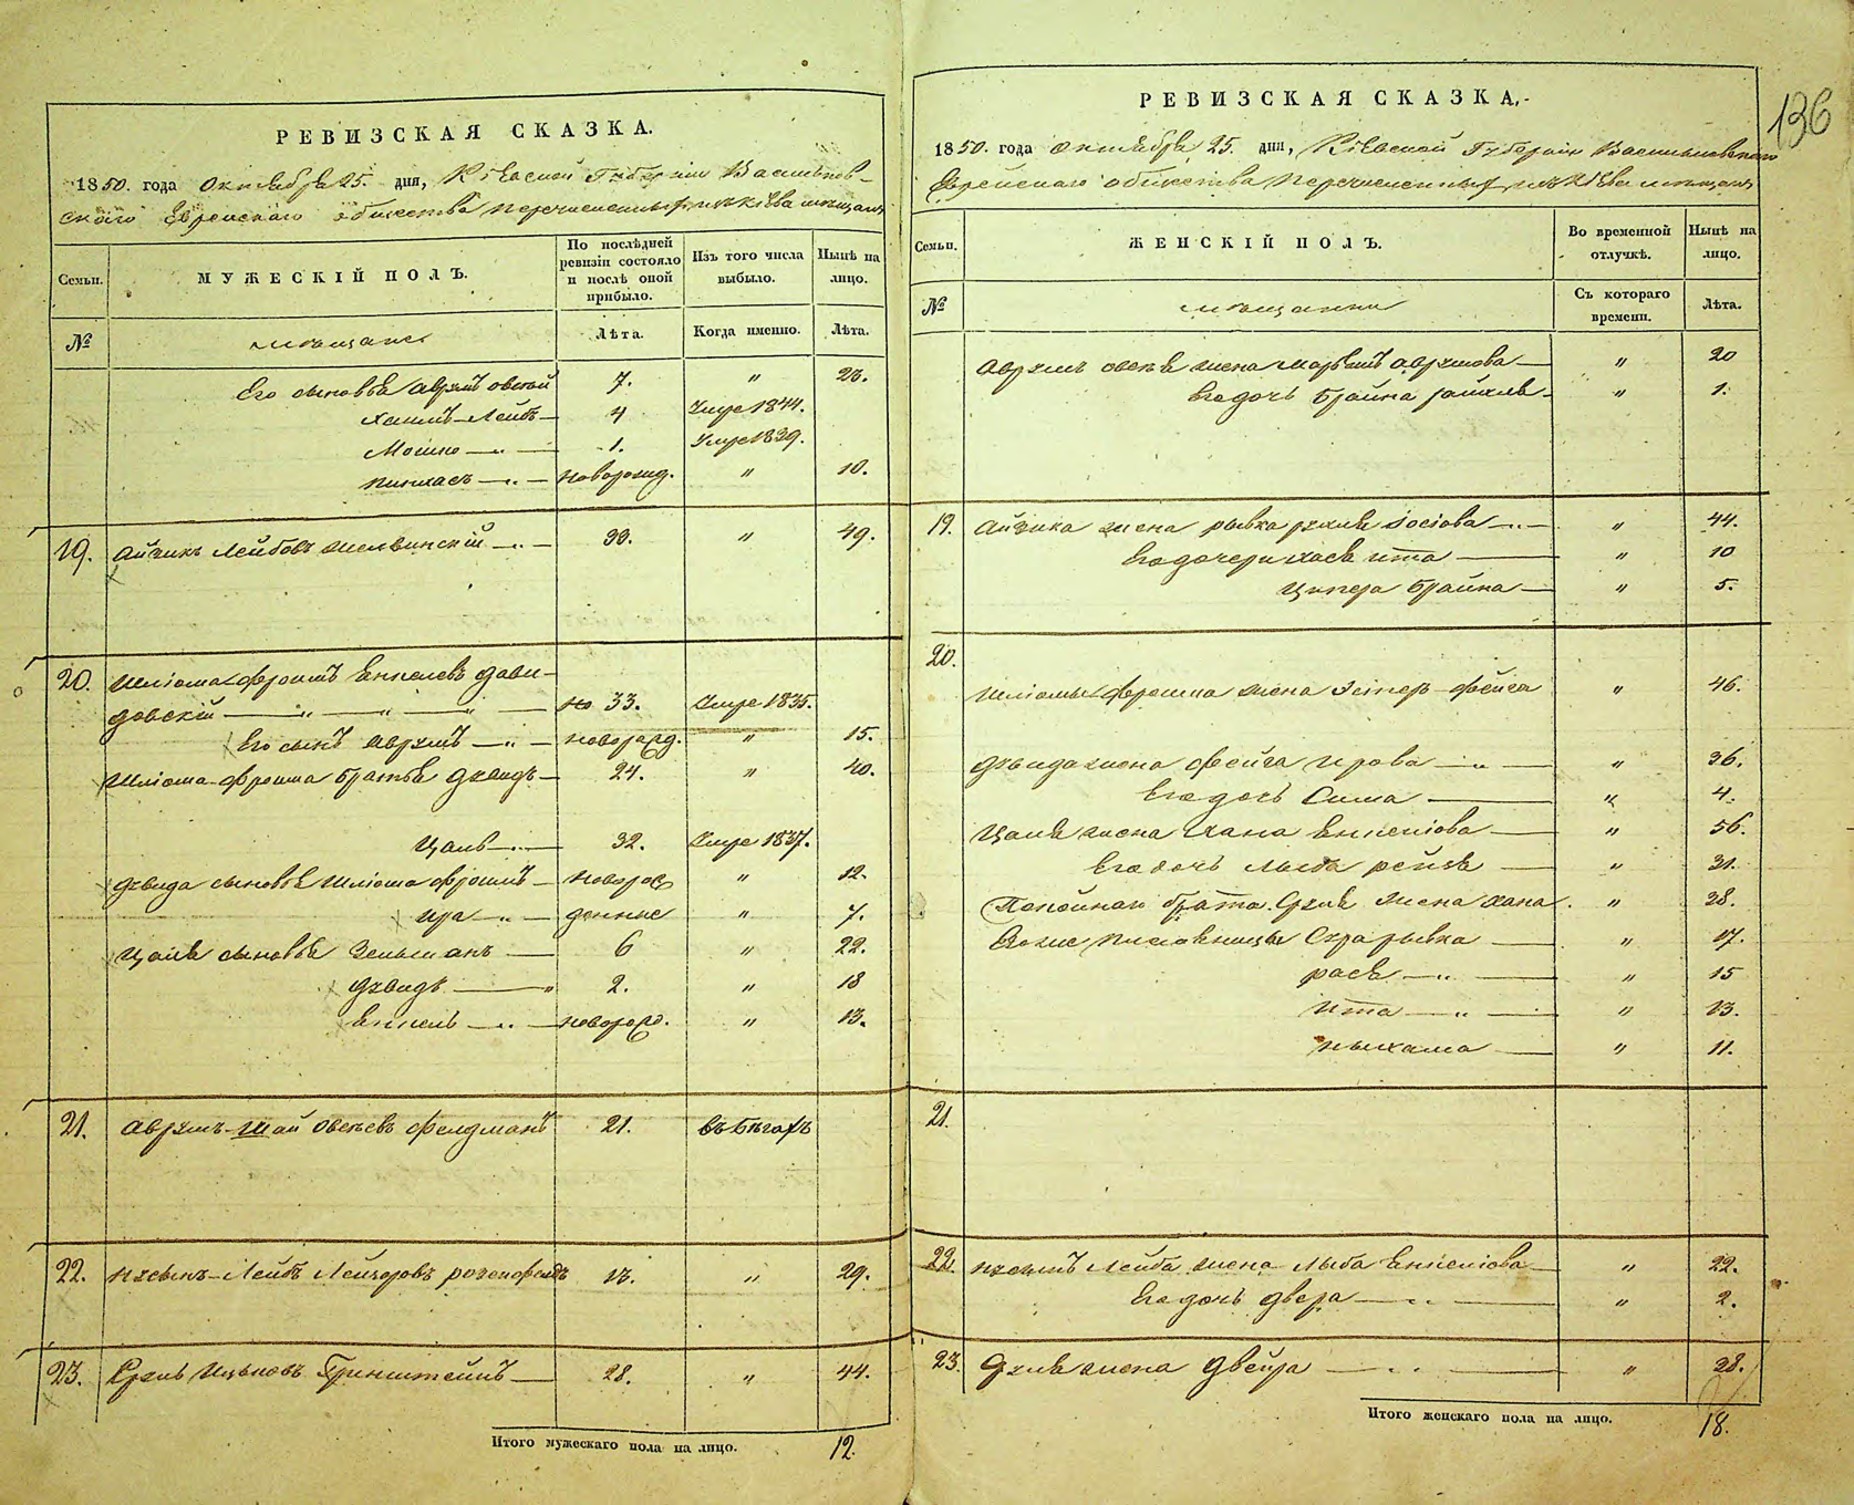 РЕВИЗСКАЯ СКАЗКА.
1850. года Октября 25. дня, Кіевской Губерніи Васильков-
скаго Еврейскаго общества перечисленныхъ изъ Кіева мещанъ
Семьи.
МУЖЕСКІЙ ПОЛЪ.
По послѣдней ревизіи состояло и послѣ оной прибыло.
Изъ того числа выбыло.
Нынѣ на лицо.
№
мещане
Лѣта.
Когда именно.
Лѣта.
Его сыновья Аврумъ Овсей 7. " 23.
Хаимъ-Лейбъ 4 Умре 1844.
Мошко 1. Умре 1839.
Пинхасъ новорожд. " 10.
19. Айзикъ Лейбовъ 33. " 49.
20. Шліома-Фроимъ Енкелевъ Дави-
довскій 33. Умре 1835.
Его сынъ Аврумъ новорожд. " 15.
Шліома-Фроима братья Давидъ 24. " 40.
Цаль 32. Умре 1837.
Давида сыновья Шліома Фроимъ новорож " 12.
Ира денные " 7.
Цаля сыновья Зельманъ 6 " 22.
Давидъ 2. " 18
Енкель новорожд. " 13.
21. Аврумъ-Шай Овсеевъ Фелдманъ 21. въ бѣгахъ
22. Нусынъ-Лейбъ Лейзоровъ Розенфелдъ 13. " 29.
23. Сруль Ицковъ Гринштейнъ 28. " 44.
Итого мужескаго пола на лицо. 12.
136
РЕВИЗСКАЯ СКАЗКА.
1850. года октября 25. дня, Кіевской Губерніи Васильковскаго
Еврейскаго общества перечисленныхъ изъ Кіева мещанъ
Семьи.
ЖЕНСКІЙ ПОЛЪ.
Во временной отлучкѣ.
Нынѣ на лицо.
№
мещанки
Съ котораго времени.
Лѣта.
Аврумъ Овсея жена Марьемъ Аврумова " 20
Его дочь Брайна " 1.
19. Айзика жена Рывка Рухля Іосіова " 44.
Его дочери Хася Ита " 10
Ципера Брайна " 5.
20.
Шліомы Фроима жена Эстеръ-Фейга " 46.
Давида жена Фейга Ирова " 36.
Его дочь Сима " 4.
Цаля жена Хана Енкеліова " 56.
Его дочь Лыба Рейзя " 31.
Покойнаго брата Сруля жена Хана. " 38.
Его же племяницы Сура Рывка " 17.
Рася " 15
Ита " 13.
Ныхама " 11.
21.
22. Нусынъ Лейба жена Лыба Енкеліова " 22.
Его дочь Двера " 2.
23. Сруля жена Двейра " 28.
Итого женскаго пола на лицо. 18.